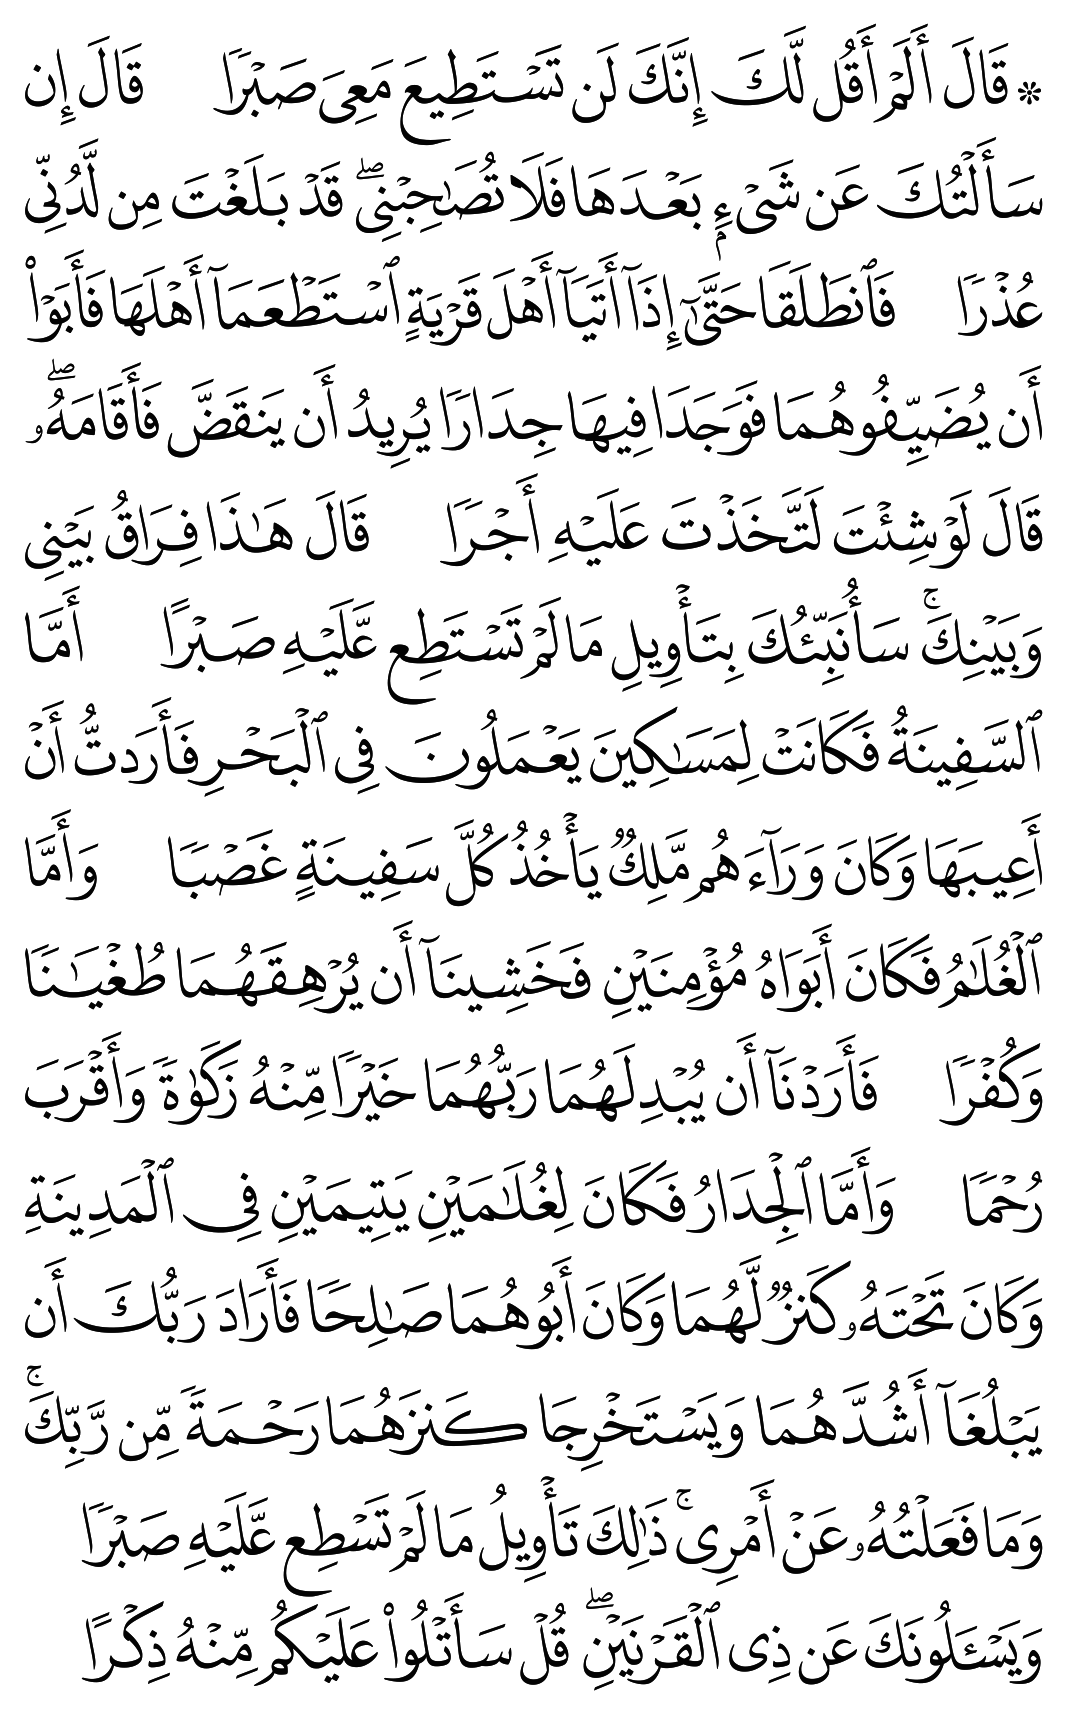 ۞ قَالَ أَلَمْ أَقُل لَّكَ إِنَّكَ لَن تَسْتَطِيعَ مَعِىَ صَبْرًا قَالَ إِن
سَأَلْتُكَ عَن شَىْءٍۭ بَعْدَهَا فَلَا تُصَـٰحِبْنِى ۖ قَدْ بَلَغْتَ مِن لَّدُنِّى
عُذْرًا فَٱنطَلَقَا حَتَّىٰٓ إِذَآ أَتَيَآ أَهْلَ قَرْيَةٍ ٱسْتَطْعَمَآ أَهْلَهَا فَأَبَوْا۟
أَن يُضَيِّفُوهُمَا فَوَجَدَا فِيهَا جِدَارًا يُرِيدُ أَن يَنقَضَّ فَأَقَامَهُۥ ۖ
قَالَ لَوْ شِئْتَ لَتَّخَذْتَ عَلَيْهِ أَجْرًا قَالَ هَـٰذَا فِرَاقُ بَيْنِى
وَبَيْنِكَ ۚ سَأُنَبِّئُكَ بِتَأْوِيلِ مَا لَمْ تَسْتَطِع عَّلَيْهِ صَبْرًا أَمَّا
ٱلسَّفِينَةُ فَكَانَتْ لِمَسَـٰكِينَ يَعْمَلُونَ فِى ٱلْبَحْرِ فَأَرَدتُّ أَنْ
أَعِيبَهَا وَكَانَ وَرَآءَهُم مَّلِكٌ يَأْخُذُ كُلَّ سَفِينَةٍ غَصْبًا وَأَمَّا
ٱلْغُلَـٰمُ فَكَانَ أَبَوَاهُ مُؤْمِنَيْنِ فَخَشِينَآ أَن يُرْهِقَهُمَا طُغْيَـٰنًا
وَكُفْرًا فَأَرَدْنَآ أَن يُبْدِلَهُمَا رَبُّهُمَا خَيْرًا مِّنْهُ زَكَوٰةً وَأَقْرَبَ
رُحْمًا وَأَمَّا ٱلْجِدَارُ فَكَانَ لِغُلَـٰمَيْنِ يَتِيمَيْنِ فِى ٱلْمَدِينَةِ
وَكَانَ تَحْتَهُۥ كَنزٌ لَّهُمَا وَكَانَ أَبُوهُمَا صَـٰلِحًا فَأَرَادَ رَبُّكَ أَن
يَبْلُغَآ أَشُدَّهُمَا وَيَسْتَخْرِجَا كَنزَهُمَا رَحْمَةً مِّن رَّبِّكَ ۚ
وَمَا فَعَلْتُهُۥ عَنْ أَمْرِى ۚ ذَٰلِكَ تَأْوِيلُ مَا لَمْ تَسْطِع عَّلَيْهِ صَبْرًا
وَيَسْـَٔلُونَكَ عَن ذِى ٱلْقَرْنَيْنِ ۖ قُلْ سَأَتْلُوا۟ عَلَيْكُم مِّنْهُ ذِكْرًا